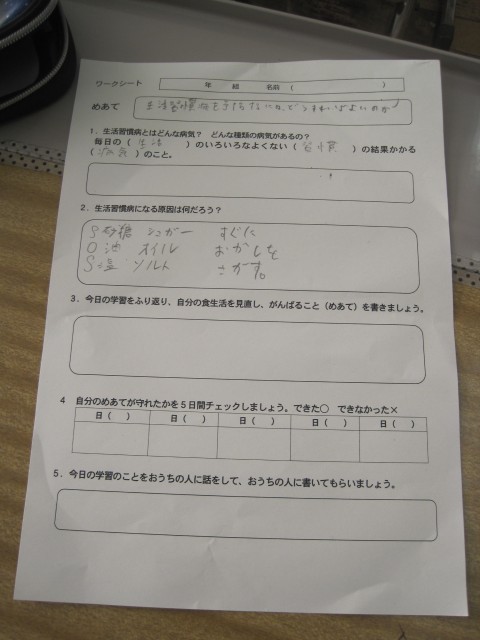 ワークシート 年 組 名前 ( )
めあて 生活習慣病を予防するにはどうすればよいのか
1．生活習慣病とはどんな病気？ どんな種類の病気があるの？
毎日の（ 生活 ）のいろいろなよくない（ 習慣 ）の結果かかる
（ 病気 ）のこと。
2．生活習慣病になる原因は何だろう？
S 砂糖 シュガー すぐに
O 油 オイル おかしを
S 塩 ソルト さがす。
3．今日の学習をふり返り、自分の食生活を見直し、がんばること（めあて）を書きましょう。
4 自分のめあてが守れたかを5日間チェックしましょう。できた○ できなかった×
日（ ） 日（ ） 日（ ） 日（ ） 日（ ）
5．今日の学習のことをおうちの人に話をして、おうちの人に書いてもらいましょう。